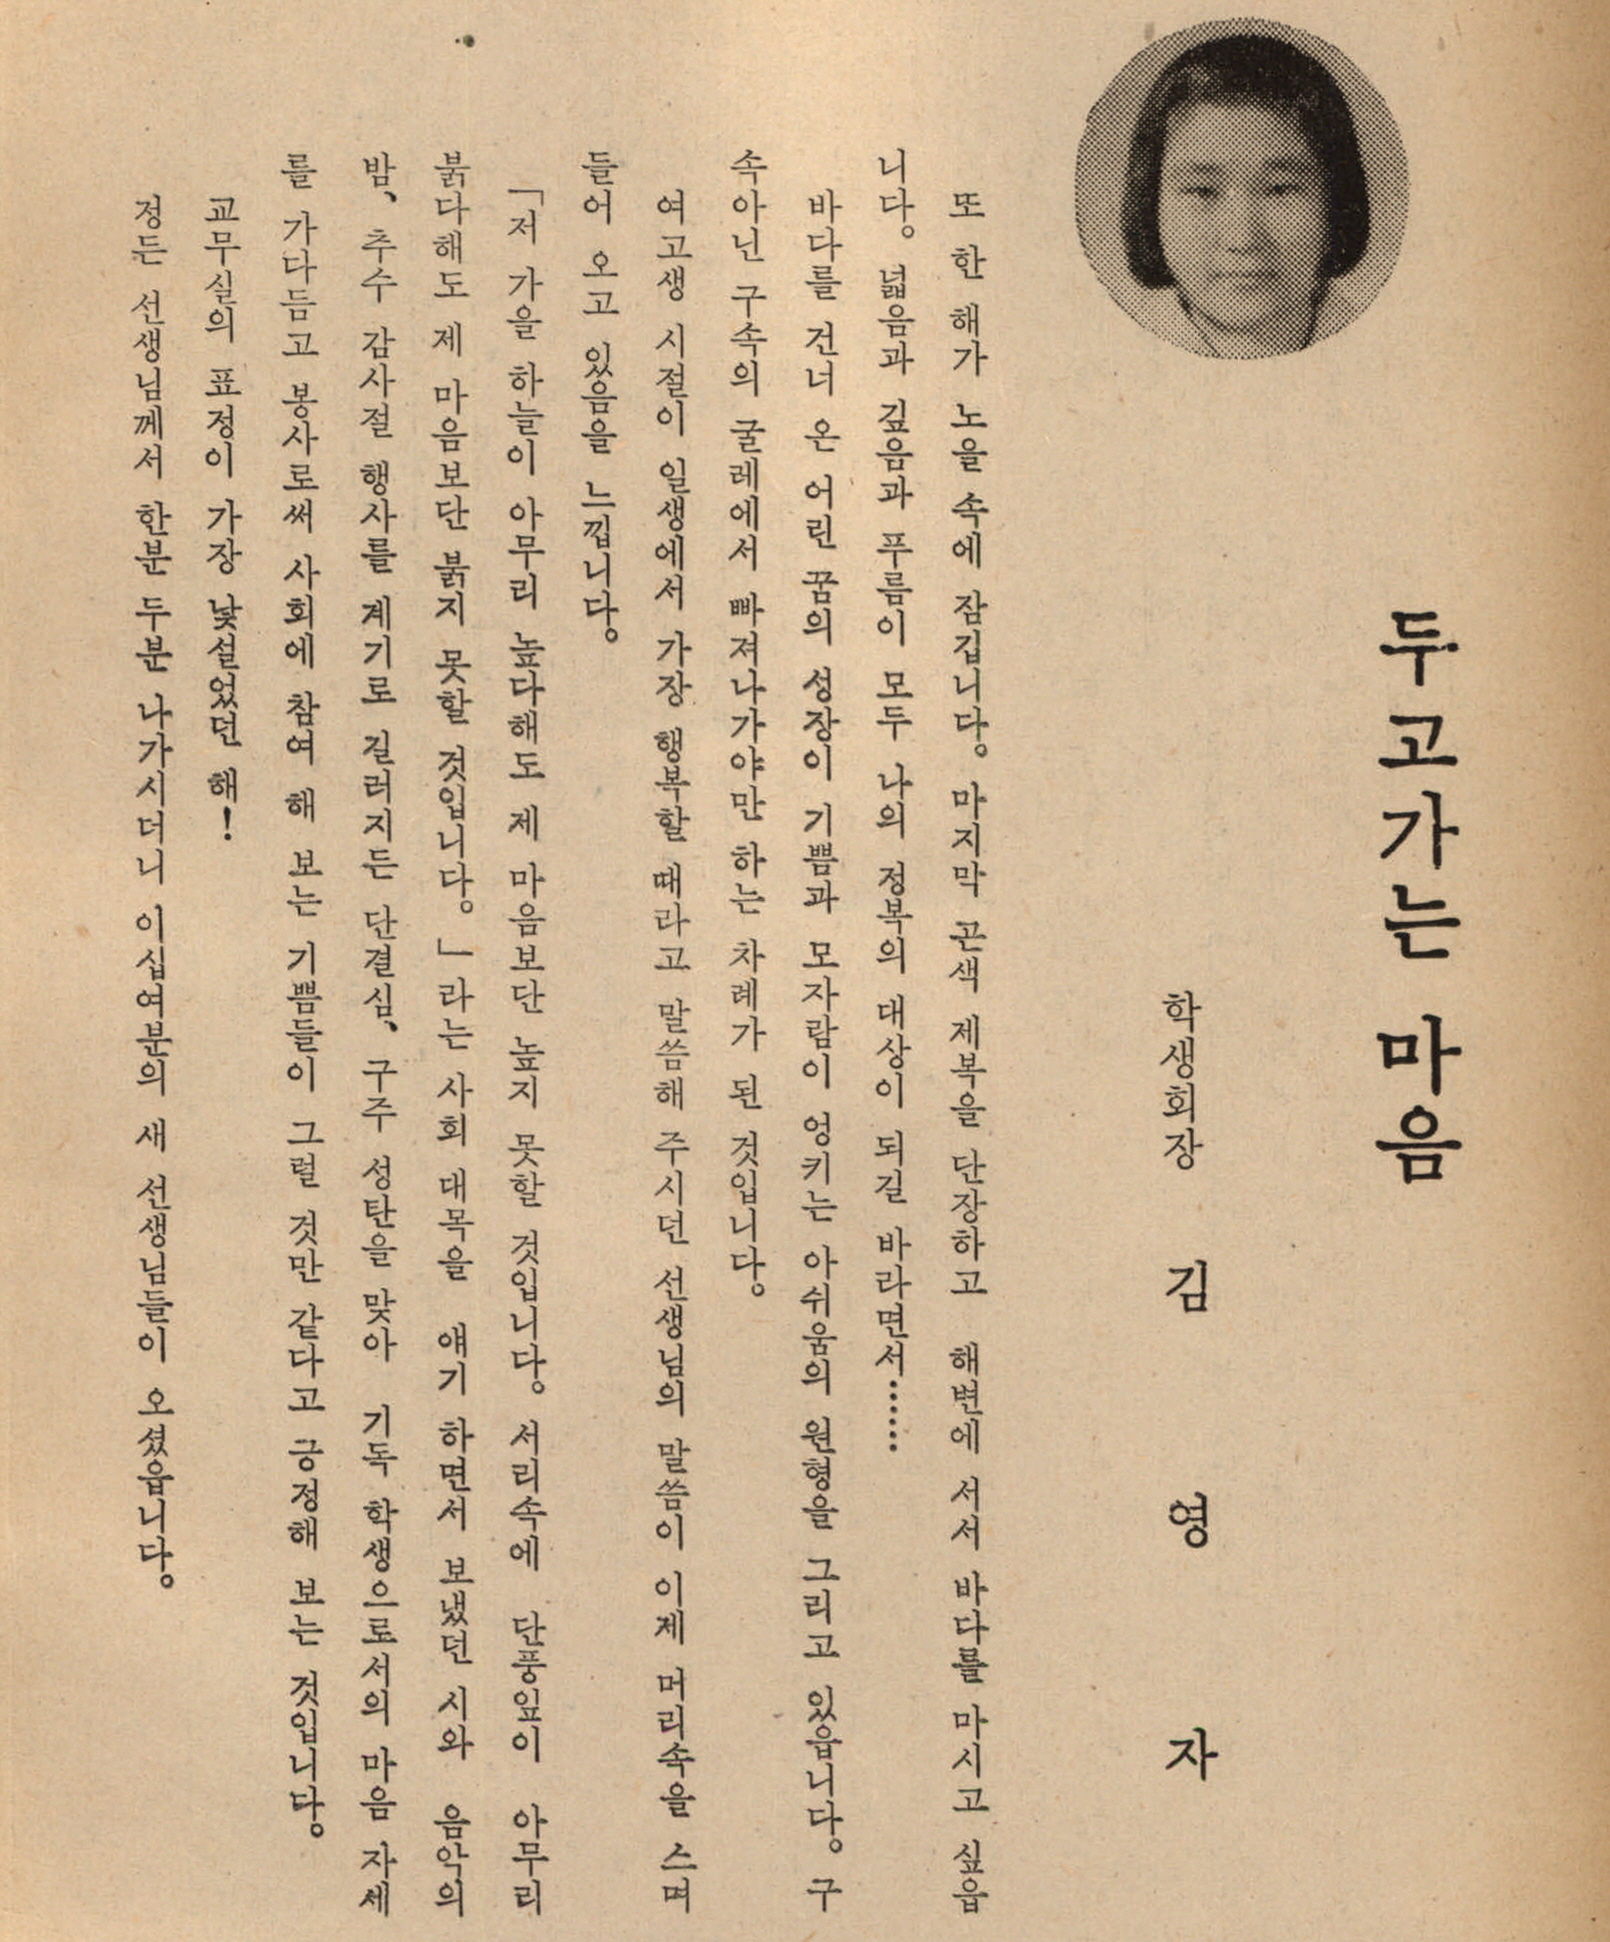 두고가는 마음
학생회장 김영자
또 한 해가 노을 속에 잠깁니다。 마지막 곤색 제복을 단장하고 해변에 서서 바다를 마시고 싶읍
니다。 넓음과 깊음과 푸름이 모두 나의 정복의 대상이 되길 바라면서……
바다를 건너 온 어린 꿈의 성장이 기쁨과 모자람이 엉키는 아쉬움의 원형을 그리고 있읍니다。 구
속아닌 구속의 굴레에서 빠져나가야만 하는 차례가 된 것입니다。
여고생 시절이 일생에서 가장 행복할 때라고 말씀해 주시던 선생님의 말씀이 이제 머리속을 스며
들어 오고 있음을 느낍니다。
「저 가을 하늘이 아무리 높다해도 제 마음보단 높지 못할 것입니다。 서리속에 단풍잎이 아무리
붉다해도 제 마음보단 붉지 못할 것입니다。」라는 사회 대목을 얘기 하면서 보냈던 시와 음악의
밤、 추수 감사절 행사를 계기로 길러지든 단결심、 구주 성탄을 맞아 기독 학생으로서의 마음 자세
를 가다듬고 봉사로써 사회에 참여 해 보는 기쁨들이 그럴 것만 같다고 긍정해 보는 것입니다。
교무실의 표정이 가장 낯설었던 해!
정든 선생님께서 한분 두분 나가시더니 이십여분의 새 선생님들이 오셨읍니다。